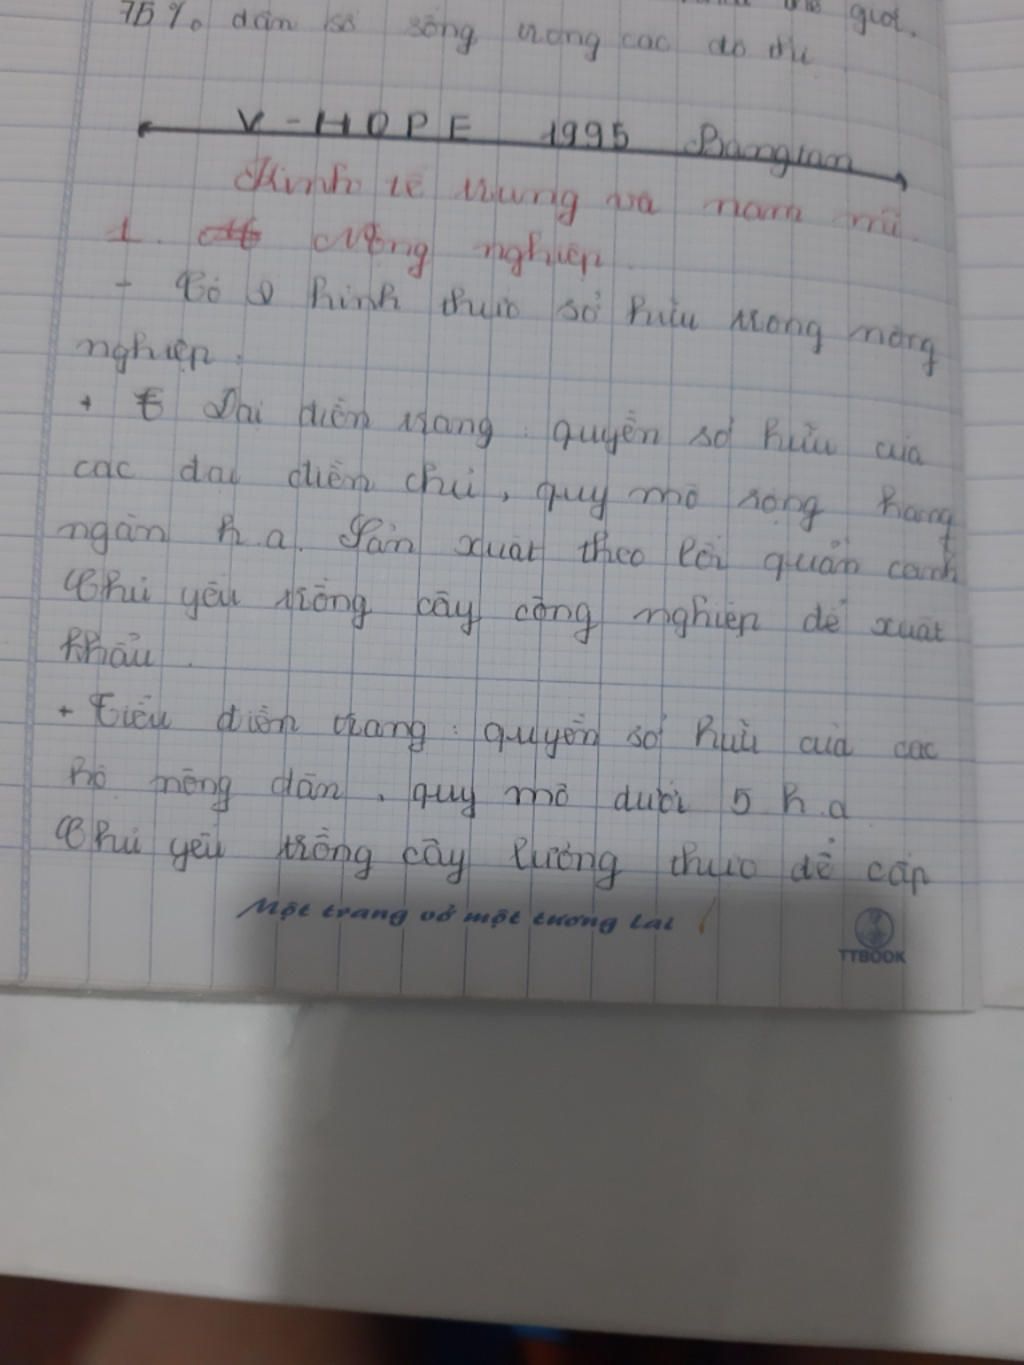 giới.
75% dân số sống trong các đô thị
V-HOPE 1995 Bangtan
Kinh tế trung và nam mĩ
1. công nghiệp
- Có 2 hình thức sở hữu trong nông
nghiệp.
+ Đại điền trang: quyền sở hữu của
các đại điền chủ, quy mô rộng hàng
ngàn h.a. Sản xuất theo lối quản canh
Chủ yếu trồng cây công nghiệp để xuất
khẩu.
+ Tiểu điền trang: quyền sở hữu của các
hộ nông dân, quy mô dưới 5 h.a
Chủ yếu trồng cây lương thực để cấp
Một trang vở một tương lai
TTBOOK